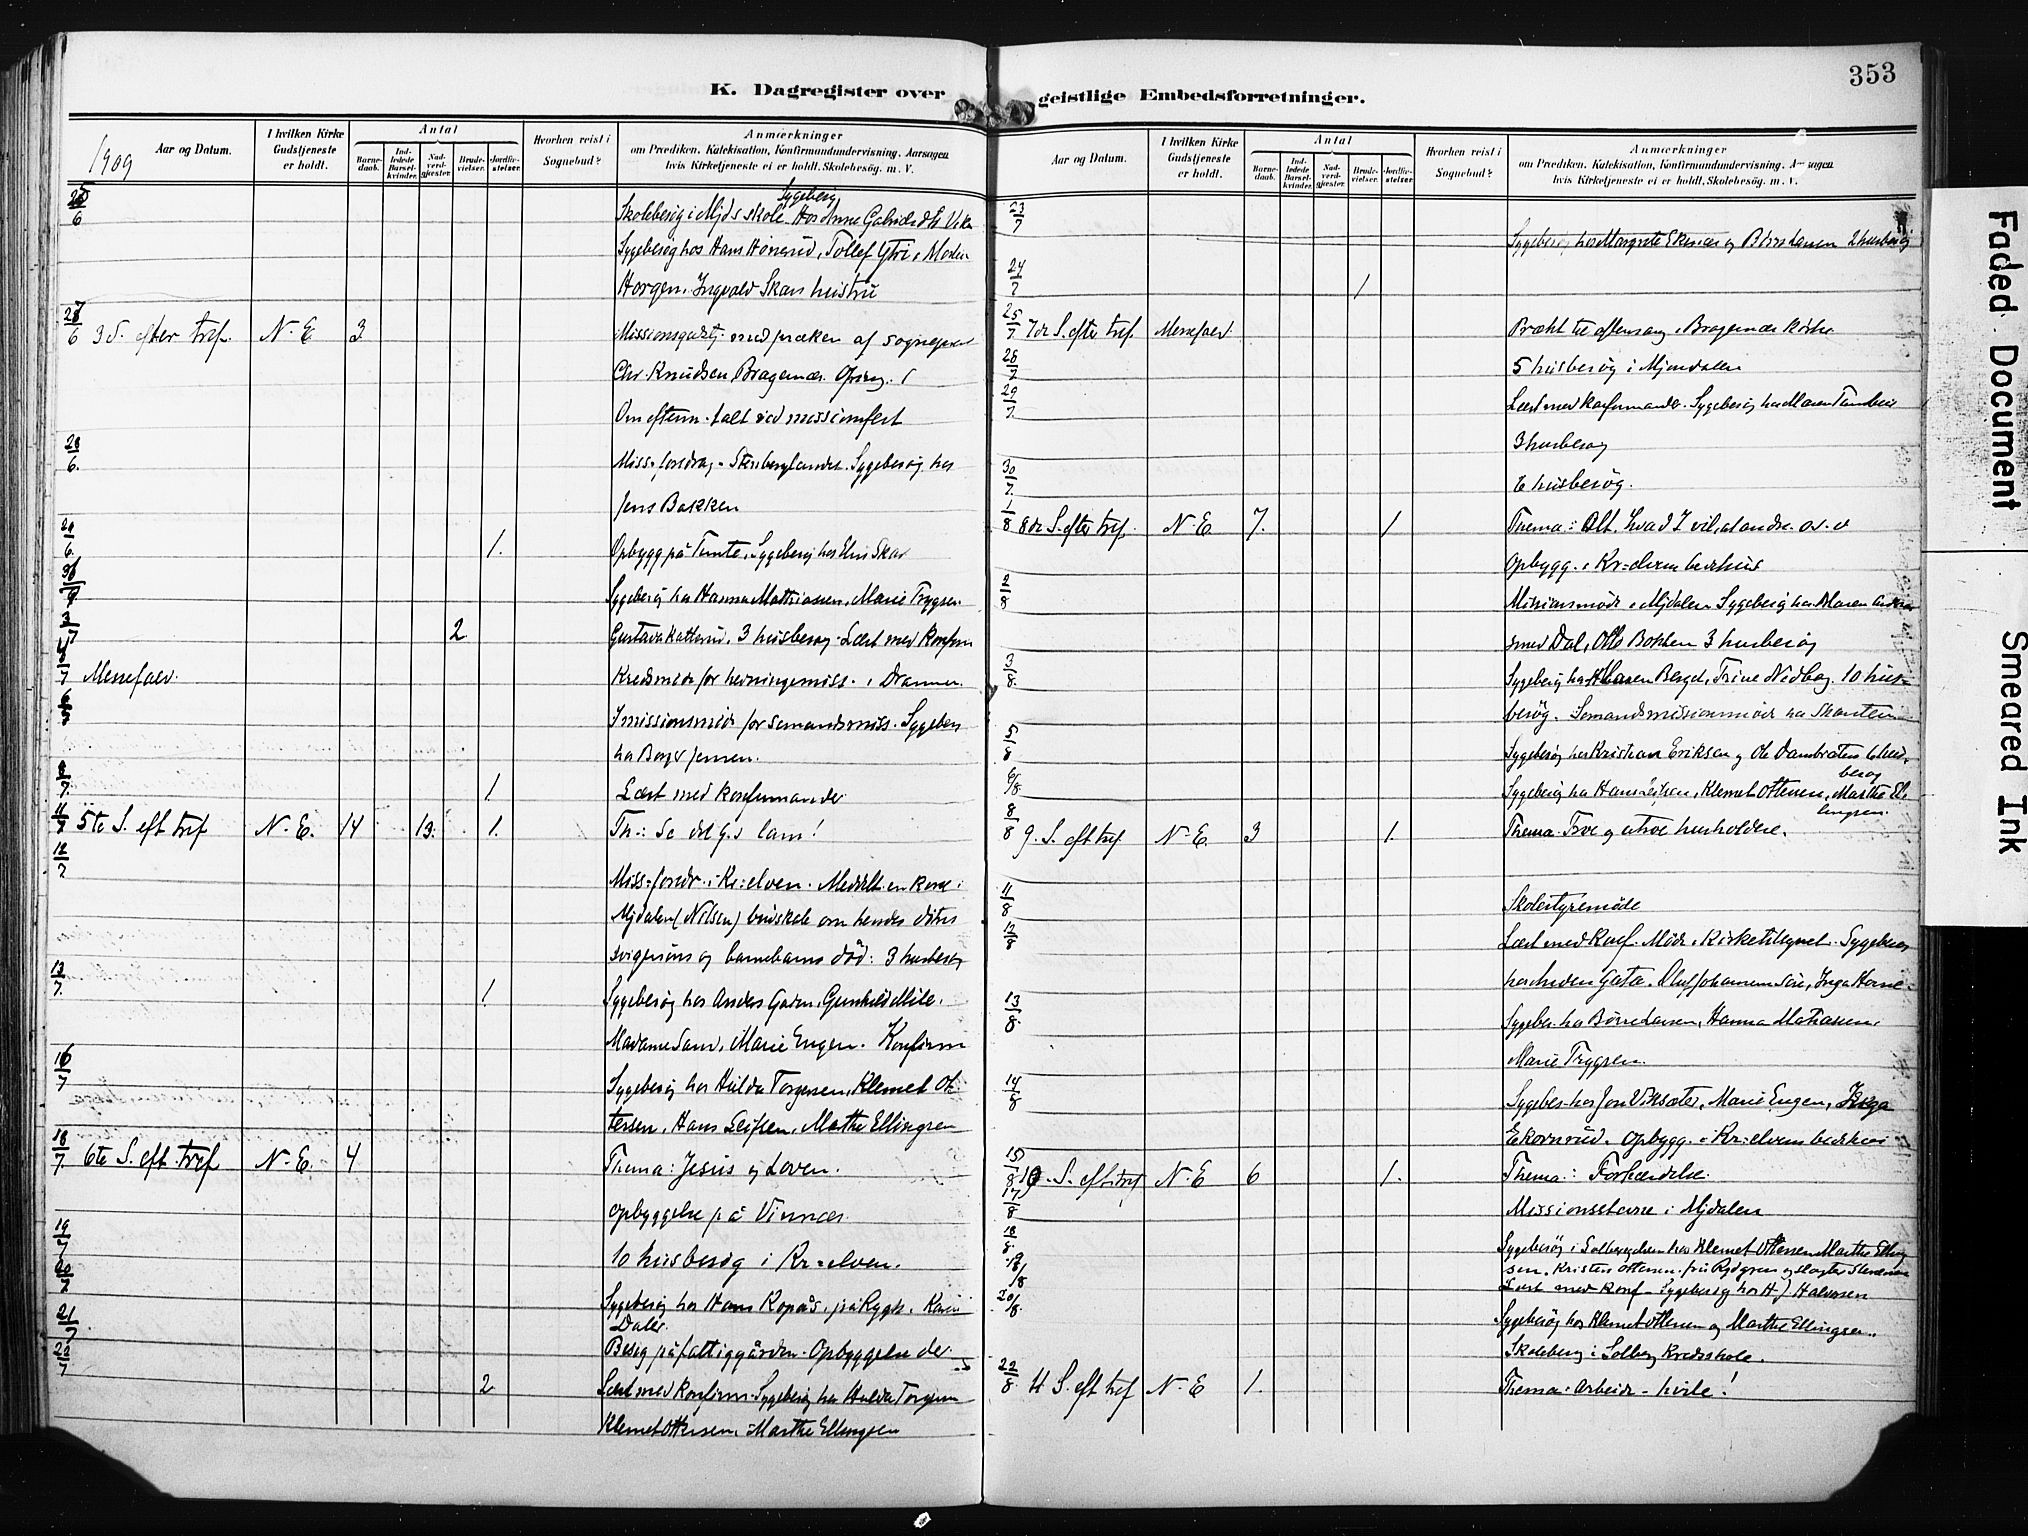 353
K. Dagregister over geistlige Embedsforretninger.
1909
Aar og Datum.
I hvilken Kirke Gudstjeneste er holdt.
Antal
Barnedaab.
Indledede Barselkvinder.
Nadverdgjester.
Brudevielser.
Jordfæstelser.
Hvorhen reist i Sognebud?
Anmærkninger
om Prædiken, Katekisation, Konfirmandundervisning, Aarsagen
hvis Kirketjeneste ei er holdt, Skolebesøg. m. V.
6 Skolebesøg i Mjds skole. Sygebesøg Hos Anne
Sygebesøg hos Hans Tollef
Horgen, Ingvald Skars hustru
6 3 S. efter tref. N. E. 3 Missionsgudstj. med præken af sognepræst
Chr. Knudsen Bragernæs
Om efterm. talt ved missionsfest
28/6. Miss. foredrag. Sygebesøg hos
Jens Bakken
6. 1. Opbygg på Sygebesøg hos
Sygebesøg hos Hanna Mathiassen, Marie Trygsen
3/7 2 3 husbesøg. Læst med konfirm
7 Messefald. Kredsmøde for hedningemiss. i Drammen.
missionsmøde for sømandsmiss. Sygebes
hos Jensen.
8/7. 1. Læst med konfirmander
11/7 5te S. eft tref N. E. 14 13. 1. Th: Se det G.s lam!
12/7 Miss. foredr. i Kr=elven. Meddelt en kone i
Mjdalen (Nilsen) budskab om hendes
svigersøns og barnebarns død: 3 husbesøg
13/7. 1 Sygebesøg hos Anders Gunhild Mile,
Madame Marie Engen. Konfirm
16/7 Sygebesøg hos Hulda Torgersen, Klemet Ot-
tersen, Hans Leifsen, Marthe Ellingsen
18/7. 6te S. eft. tref N. E. 4 Thema: Jesus og Loven.
Opbyggelse på Vinnæs.
19/7 10 husbesøg i Kr=elven.
20/7 Sygebesøg hos Hans Kopås,
21/7 Besøg på fattiggården. Opbyggelse der
22/7 2 Læst med konfirm. Sygebesøg hos Hulda Torgersen
Klemet Ottersen, Marthe Ellingsen
Aar og Datum.
I hvilken Kirke Gudstjeneste er holdt.
Antal
Barnedaab.
Indledede Barselkvinder.
Nadverdgjester.
Brudevielser.
Jordfæstelser.
Hvorhen reist i Sognebud?
Anmærkninger
om Prædiken, Katekisation, Konfirmandundervisning, Aarsagen
hvis Kirketjeneste ei er holdt, Skolebesøg. m. V.
23/7 Sygebesøg hos Margrete og 2 husbesøg
24/7 1
25/7. 7de S. efter tref. Messefald. Prækt til aftensang i Bragernæs kirke
28/7 5 husbesøg i Mjøndalen
29/7 Læst med konfirmander. Sygebesøg hos Maren
3 husbesøg
30/7. 6 husbesøg.
1/8 8de S. efter tref. N. E. 7. 1 Thema: Alt, hvad I vil, at andre o. s. v
Opbygg. i Kr=elvens bedehus
2/8 Missionsmøde i Mjdalen Sygebesøg hos Maren
Dal, Bakken 3 husbesøg
3/8. Sygebesøg hos Maren Trine 10 hus=
besøg. Sømandsmissionsmøde hos
5/8 Sygebesøg hos Kristian Eriksen og Ole 6 hus-
besøg
6/8 Sygebesøg hos Hans Leifsen, Klemet Ottersen, Marthe El-
lingsen.
8/8 9. S. eft tref. N. E. 3 1 Thema. Tro og utro husholdere.
11/8 Skolestyremøde
12/8 Læst med konf. Møde i kirketilsynet. Sygebesøg
Gata. Oluf Johannessen Inga
13/8. Sygebes. hos Hanna Mathiassen,
Marie Trygsen.
14/8 Sygebes. hos Jon Vikseter, Marie Engen, Inga
Ekornrud. Opbygg. i Kr=elvens bedehus
15/8 10. S. eft. tref N. E 6 1. Thema: Forhærdelse.
17/8 Missionsstævne i Mjdalen
18/8. Sygebesøg i hos Klemet Ottersen Marthe Elling
sen, Kristen Ottersen, fru Rydgren og
19/8 Læst med konf. Sygebesøg hos H. J Halvorsen
20/8. Sygebesøg hos Klemet Ottersen og Marthe Ellingsen.
Skolebesøg i Solberg Kredsskole.
22/8. 11 S. eft tref N. E 1. Thema: Arbeide - hvile!
Faded Document
Smeared Ink